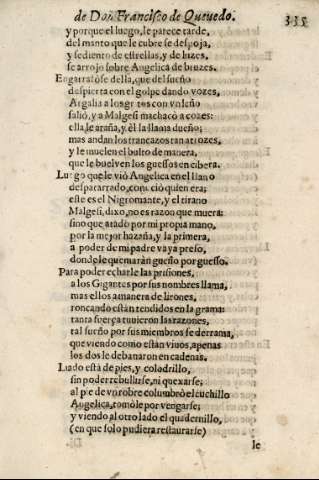 de Don Francisco de Quevedo. 335
y porque el luego, le parece tarde,
del manto que le cubre se despoja,
y sediento de estrellas, y de luzes,
se arrojò sobre Angelica de bruzes.
Engarrafòse della, que del sueño
despierta con el golpe dando vozes,
Argalia a los gritos con vn leño
saliò, y a Malgesi machacò a cozes:
ella le araña, y èl la llama dueño;
mas andan los trancazos tan atrozes,
y le muelen el bulto de manera,
que le buelven los guessos en cibera.
Luego que le viò Angelica en el llano
desparrado, conociò quien era;
este es el Nigromante, y el tirano
Malgesi, dixo, no es razon que muera:
sino que atado por mi propia mano,
por la mejor hazaña, y la primera,
a poder de mi padre vaya preso,
donde le quemaràn guesso por guesso.
Para poder echarle las prisiones,
a los Gigantes por sus nombres llama,
mas ellos a manera de lirones,
roncando estàn tendidos en la grama:
tanta fuerça tuuieron las razones,
tal sueño por sus miembros se derrama,
que viendo como estàn viuos, apenas
los dos le debanaron en cadenas.
Liado està de pies, y colodrillo,
sin poder rebullirse, ni quexarse;
al pie de vn robre columbrò el cuchillo
Angelica, tomòle por vengarse;
y viendo al otro lado el quadernillo,
(en que solo pudiera restaurarse)
le